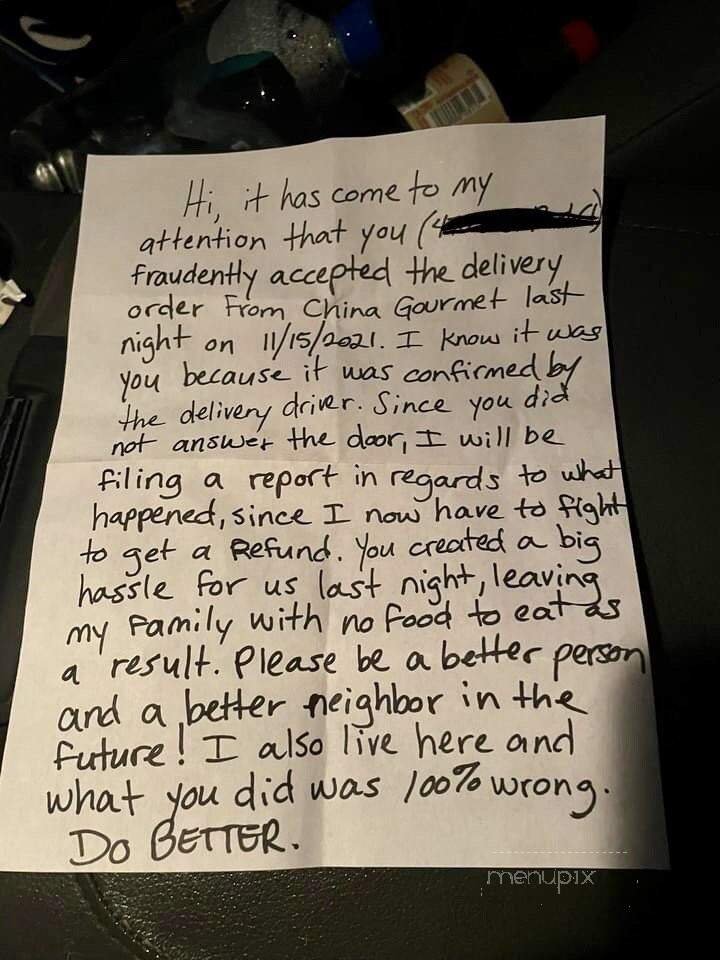 Hi, it has come to my
attention that you (4
fraudently accepted the delivery
order from China Gourmet last
night on 11/15/2021. I know it was
you because it was confirmed by
the delivery driver. Since you did
not answer the door, I will be
filing a report in regards to what
happened, since I now have to fight
to get a Refund. You created a big
hassle for us last night, leaving
my family with no food to eat as
a result. Please be a better person
and a better neighbor in the
future! I also live here and
what you did was 100% wrong.
Do BETTER.
menupix